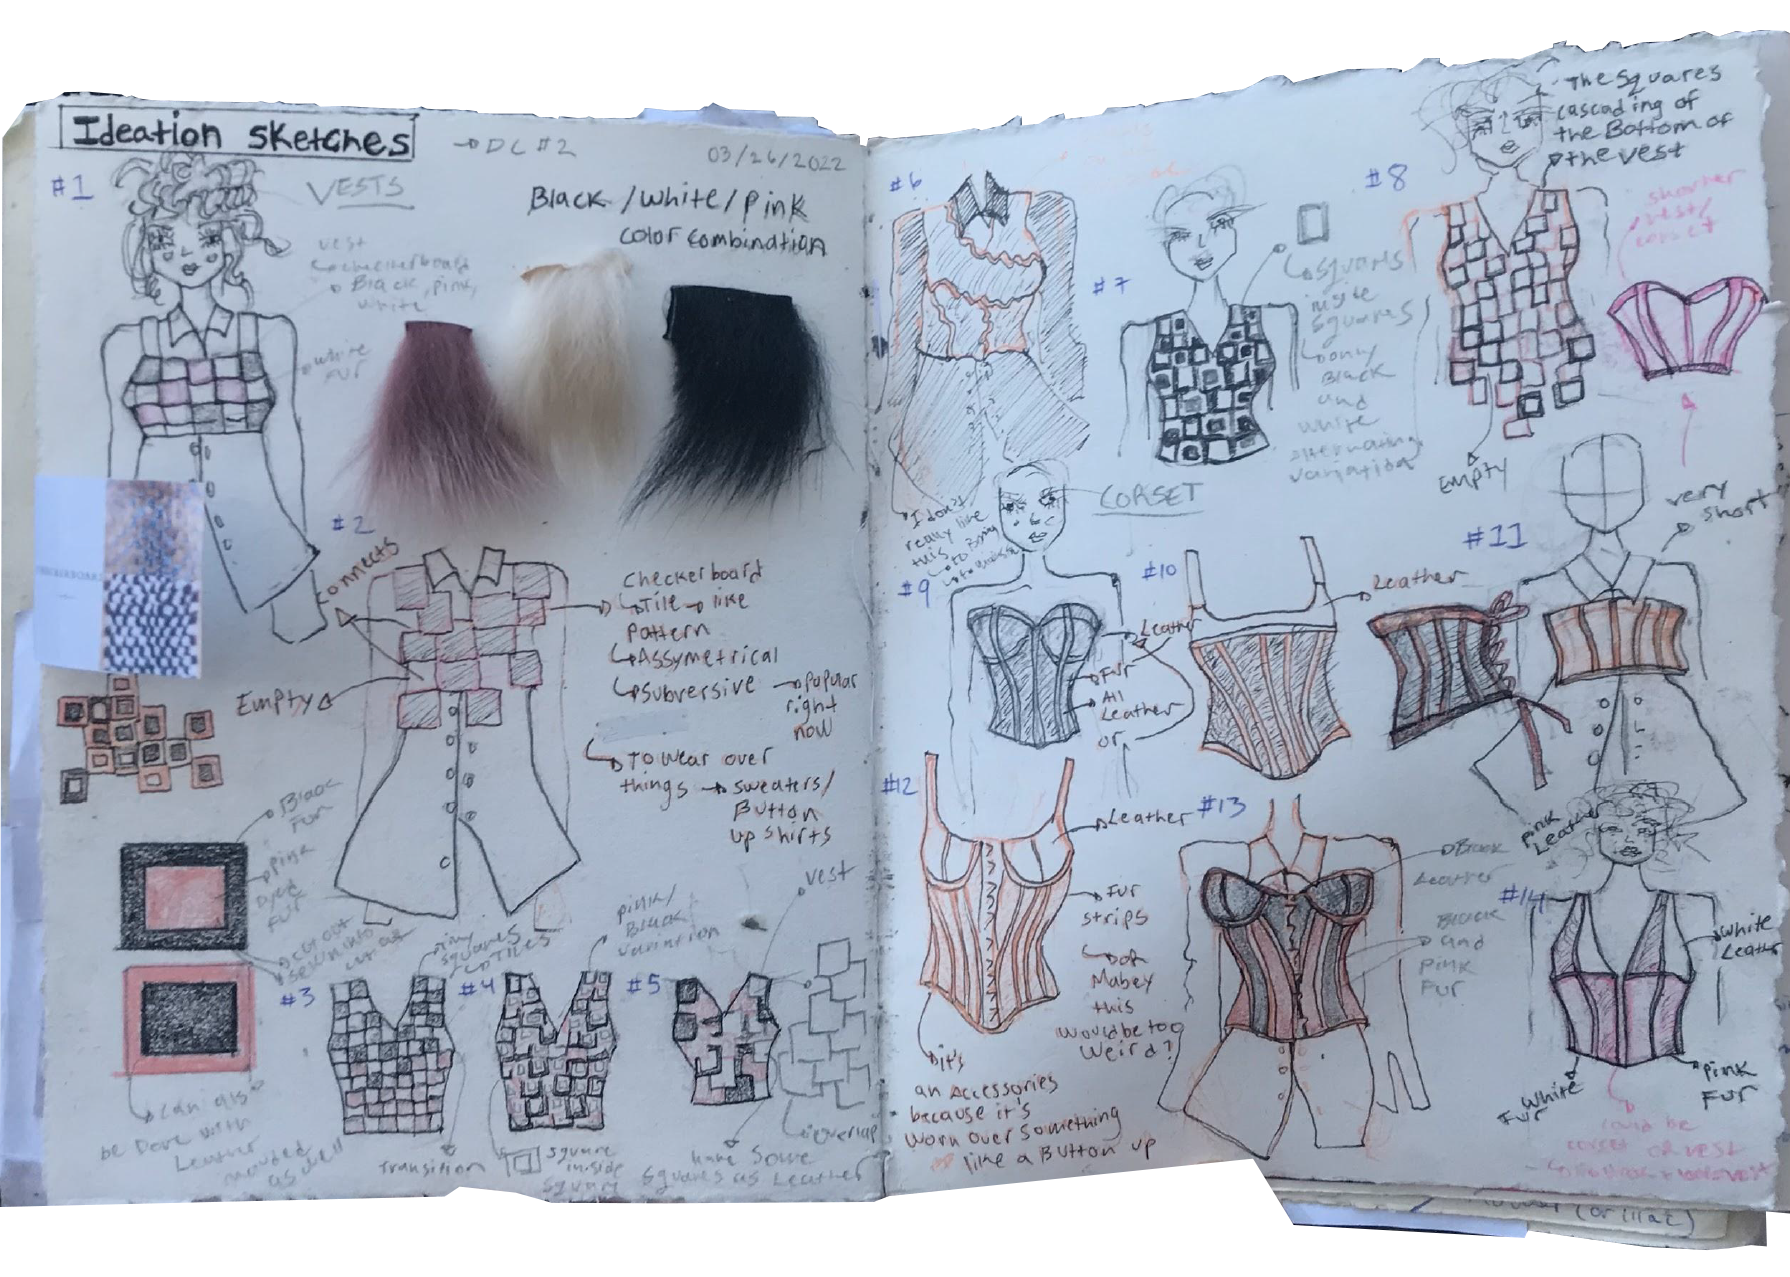 Ideation sketches
→ DC #2
03/26/2022
#1
VESTS
Black /White/pink
color combination
vest
↳checkerboard
Black, pink,
white
→white
Fur
#2
connects
Empty
Checkerboard
↳Tile → like
pattern
↳Assymetrical
↳subversive → popular
right
now
↳To wear over
things → sweaters/
Button
up shirts
→Black
Fur
pink
Dyed
Fur
cut out
sewn into
↳can also
be Done with
Leather
as well
#3
Transition
#4
Tiny
squares
↳Tiles
square
inside
square
#5
pink/
Black
variation
vest
overlap
have some
squares as Leather
#6
"I don't
really like
this
#7
↳squares
inside
squares
↳only
Black
and
white
alternating
variation
#8
→The squares
cascading of
the Bottom of
the vest
Empty
shorter
vest/
corset
CORSET
#9
Leather
→Fur
→All
Leather
or
#10
Leather
#11
very
short
#12
→Leather
→Fur
strips
↳or
Mabey
this
would be too
weird?
↳it's
an Accessories
because it's
worn over something
like a Button up
#13
→Black
Leather
→Black
and
pink
Fur
#14
pink
Leather
white
Leather
White
Fur
pink
Fur
could be
corset or vest